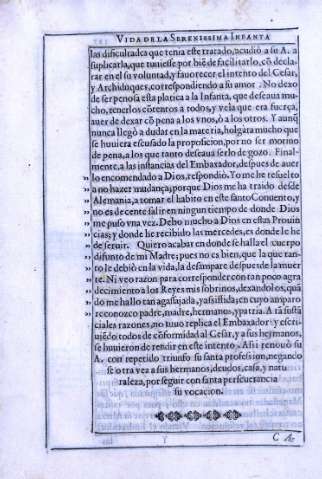 VIDA DE LA SERENISSIMA INFANTA
las dificultades que tenia este tratado, acudió a su A. a
suplicarla, que tuuiesse por biẽ de facilitarlo, cõ decla-
rar en el su voluntad, y fauorecer el intento del Cesar,
y Archiduques, correspondiendo a su amor. No dexo
de ser penosa esta platica a la Infanta, que deseaua mu-
cho, tenerlos cõtentos a todos, y veìa que era fuerça,
auer de dexar cõ pena a los vnos, ò a los otros. Y aunq̃
nunca llegò a dudar en la materia, holgàra mucho que
se huuiera escusado la proposicion, por no ser morno
de pena, a los que tanto deseaua serlo de gozo. Final-
mente, a las instancias del Embaxador, despues de auer
lo encomendado a Dios, respondiò. Yo me he resuelto
„ a no hazer mudança; porque Dios me ha traido desde
„ Alemania, a tomar el habito en este santo Conuento, y
„ no es decente salir en ningun tiempo de donde Dios
„ me puso vna vez. Debo mucho a Dios en estas Prouin
„ cias; y donde he recibido las mercedes, es donde le he
„ de seruir. Quiero acabar en donde se halla el cuerpo
„ difunto de mi Madre; pues no es bien, que la que tan-
„ to le debiò en la vida, la desampare despues de la muer
„ te. Ni veo razon para corresponder con tan poco agra
„ decimiento a los Reyes mis sobrinos, dexandolos, quã
„ do me hallo tan agasajada, y assistida; en cuyo amparo
„ reconozco padre, madre, hermano, y patria. A tã sustã
ciales razones, no tuuo replica el Embaxador: y escri-
uiẽdo todos de cõformidad al Cesar, y a sus hermanos,
se huuieron de rendir en este intento. Assi renouò su
A. con repetido triunfo su santa profession, negando
se otra vez a sus hermanos, deudos, casa, y natu
raleza, por seguir con santa perseuerancia
su vocacion.
C